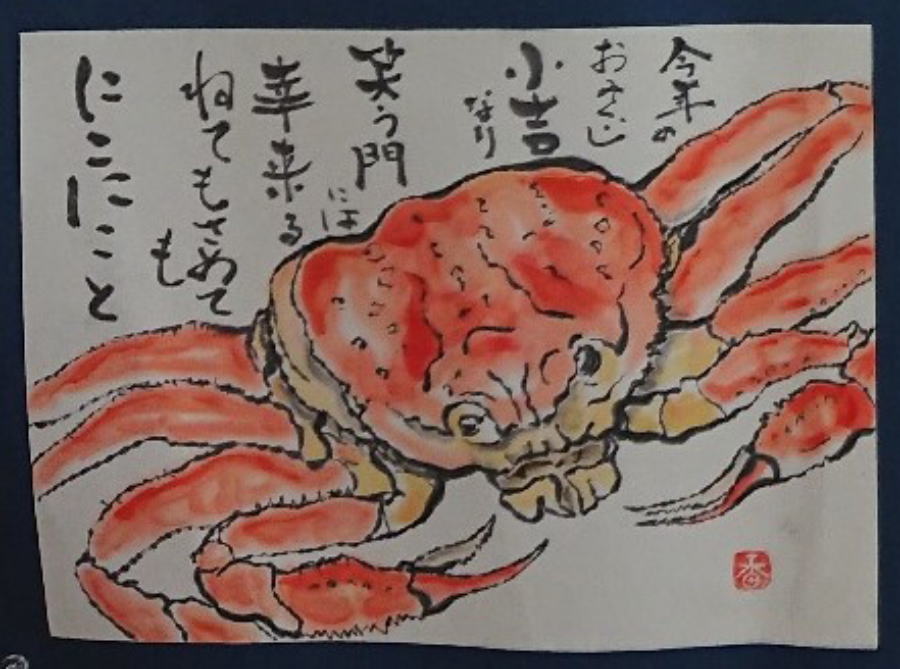 今年の
おみくじ
小吉
なり
笑う門
には
幸来る
ねてもさめて
も
にこにこと
香